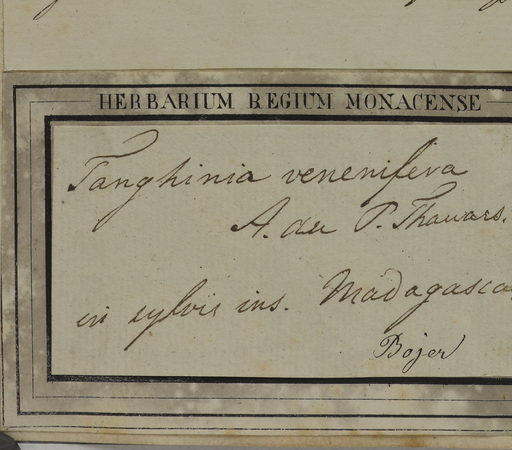 HERBARIUM REGIUM MONACENSE
Tanghinia venenifera
A. du P. Thouars.
in sylvis ins. Madagasca
Bojer